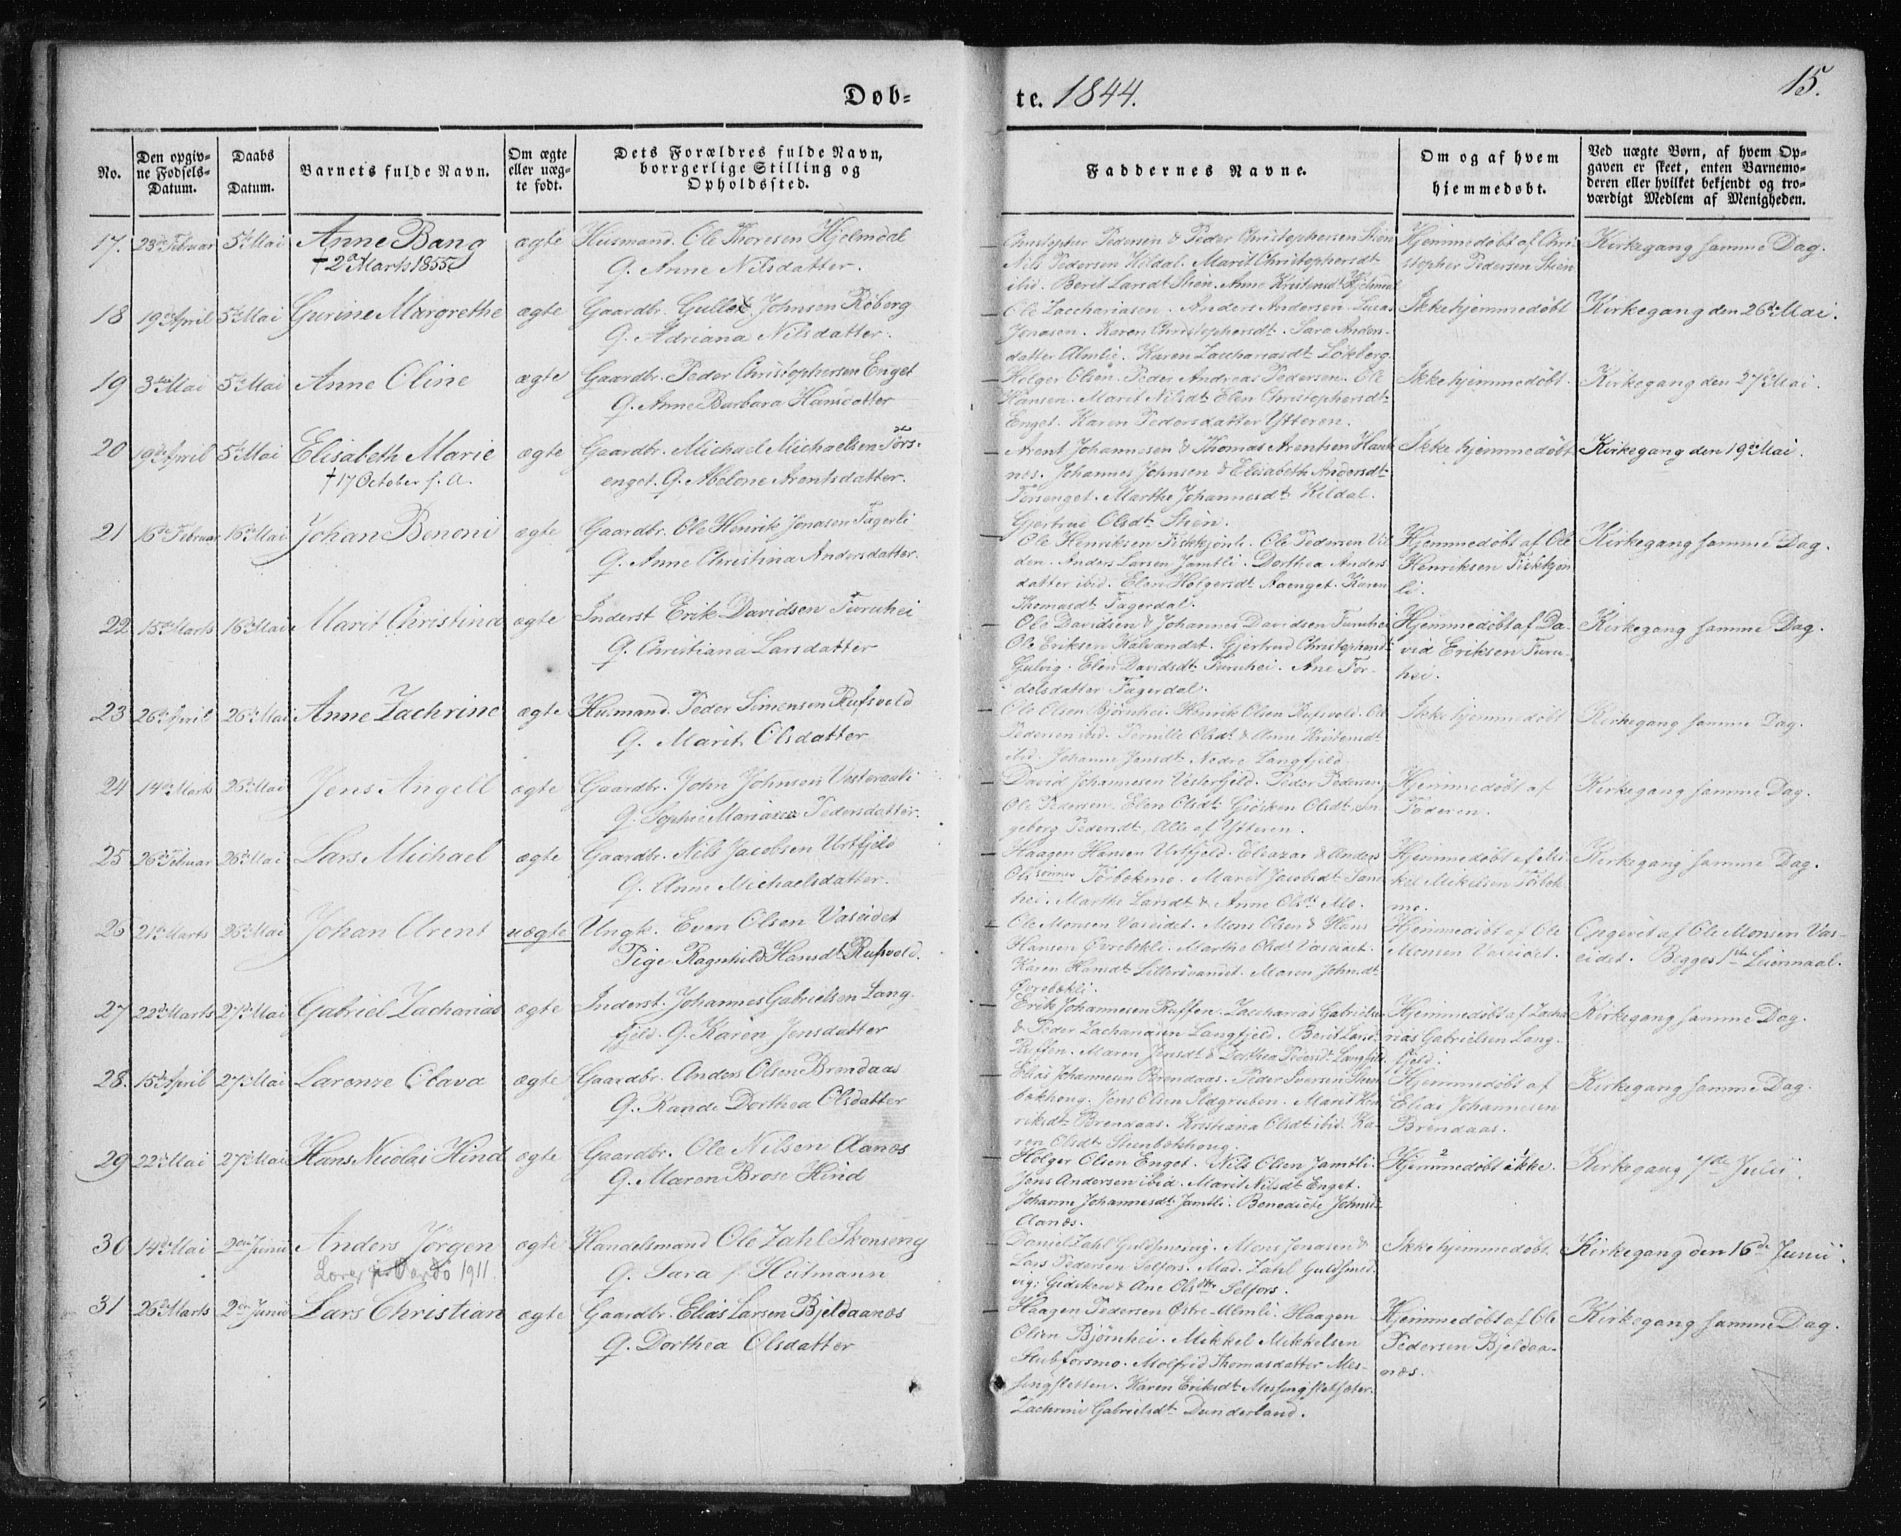 Døb-
te. 1844.
15.
No.
Den opgiv-
ne Fødsels-
Datum.
Daabs
Datum.
Barnets fulde Navn.
Om ægte
eller uæg-
te født.
Dets Forældres fulde Navn,
borrgerlige Stilling og
Opholdssted.
Faddernes Navne.
Om og af hvem
hjemmedøbt.
Ved uægte Børn, af hvem Op-
gaven er skeet, enten Barnemo-
deren eller hvilket bekjendt og tro-
værdigt Medlem af Menigheden.
17. 23de Februar 5te Mai Anne Bang ægte Husmand. Ole Thoresen Hjelmdal
† 2d Marts 1855
Q. Anne Nilsdatter.
Christopher Pedersen & Peder Christophersen Stien
Nils Pedersen Kildal. Marit Christophersdt
ibid. Berit Larsdt Stien. Anne Kristensdt Hjelmdal
Hjemmedøbt af Chri-
stopher Pedersen Stien
Kirkegang samme Dag.
18 19de April 5te Mai Gurine Margrethe ægte Gaardbr. Johnsen Røberg
Q. Adriana Nilsdatter.
Ole Zacchariasen. Anders Andersen. Lucas
Jonasen. Karen Christophersdt. Sara Anders-
datter Almlie. Karen Zacchariasdt Løkberg
Ikke hjemmedøbt
Kirkegang den 26de Mai.
19 3die Mai 5te Mai Anne Oline ægte Gaardbr. Peder Christophersen Enget
Q. Anne Barbara Hansdatter
Holger Olsen. Peder Andreas Pedersen. Ole
Hansen. Marit Nilsdt Elen Christophersdt
Enget. Karen Pedersdatter Ytteren.
Ikke hjemmedøbt.
Kirkegang den 27de Mai.
20 19de April 5te Mai Elisabeth Marie ægte Gaardbr. Michael Michaelsen Tørs-
† 17 October s. A.
enget. Q. Melone Arentsdatter.
Arent Johannesen & Thomas Arentsen Hauk-
nes. Johannes Johnsen & Elisabeth Andersdt
Forsenget. Marthe Johannesdt Kildal.
Gjertrud Olsdt Stien.
Ikke hjemmedøbt
Kirkegang den 19de Mai.
21 16de Februar 16de Mai Johan Benoni ægte Gaardbr. Ole Henrik Jonasen Fagerli
Q. Anne Christina Andersdatter.
Ole Henriksen Fiskkjønli. Ole Pedersen
den. Anders Larsen Jamtli. Dorthea Anders
datter ibid. Elen Holgersdt Aaenget. Karen
Thomasdt Fagerdal.
Hjemmedøbt af Ole
Henriksen Fiskkjøn
li.
Kirkegang samme Dag.
22 15de Marts 16de Mai Marit Christina ægte Inderst Erik Davidsen Furuhei
Q. Christiana Larsdatter
Ole Davidsen & Johannes Davidsen Furuhei
Ole Eriksen Kalvandet. Gjertrud Christophersdt
Gulvig. Elen Davidsdt Furuhei. Ane For-
delsdatter Fagerdal.
Hjemmedøbt af Da-
vid Eriksen Furu-
hei.
Kirkegang samme Dag.
23 26de April 26de Mai Anne Zachrine ægte Husmand. Peder Simensen Rufsvold
Q. Marit Olsdatter
Ole Olsen Bjørnhei. Henrik Olsen Rufsvold. Ole
Pedersen ibid. Pernille Olsdt & Anne Kristensdt
ibid. Johanne Jensdt Nedre Langfjeld
Ikke hjemmedøbt
Kirkegang samme Dag.
24 14de Marts 26de Mai Jens Angell ægte Gaardbr. John Johnsen
Q. Sophie Mariana Pedersdatter.
David Johannesen Vesterfjeld. Peder Pedersen
Ole Pedersen. Elen Olsdt Gjøsken Olsdt In-
geborg Pedersdt, Alle af Ytteren.
Hjemmedøbt af
Faderen.
Kirkegang samme Dag.
25 26de Februar 26de Mai Lars Michael ægte Gaardbr. Nils Jacobsen Urtfjeld
Q. Anne Michaelsdatter.
Haagen Hansen Urtfjeld. Eleazar & Anders
Olssønner Tørbekmo. Marit Jacobsdt
hei. Marthe Larsdt & Anne Olsdt Mo.
Hjemmedøbt af Mi-
kel Mikelsen Tørbek-
mo.
Kirkegang samme Dag.
26 21de Marts 26de Mai Johan Arent uægte Ungk. Even Olsen Vaseidet
Pige Ragnhild Hansdt Rufsvold.
Ole Monsen Vaseidet. Mons Olsen & Hans
Hansen Øvrebækli. Marthe Olsdt Vaseidet.
Karen Hansdt Lillersvandet. Maren Johnsdt
Øvrebækli.
Hjemmedøbt af Ole
Monsen Vaseidet.
Opgivet af Ole Monsen Vas-
eidet. Begges 1ste Leiermaal.
27 22de Marts 27de Mai Gabriel Zacharias ægte Inderst. Johannes Gabrielsen Lang-
fjeld. Q. Karen Jensdatter
Erik Johannesen Ruffen. Zaccharias Gabrielsen
& Peder Zachariasen Langfjeld. Berit Larsdt
Ruffen. Maren Jensdt & Dorthea Pedersdt Langfjeld
Hjemmedøbt af Zacha
rias Gabrielsen Lang-
fjeld.
Kirkegang samme Dag.
28. 15de April 27de Mai Laronze Olava ægte Gaardbr. Anders Olsen Brendaas
Q. Rande Dorthea Olsdatter
Elias Johannesen Brendaas. Peder Iversen Sten
bekhoug. Jens Olsen Ildgruben. Marit Hen
riksdt Brendaas. Kristiana Olsdt ibid. Ka-
ren Olsdt Stenbekhoug.
Hjemmedøbt af
Elias Johannesen
Brendaas.
Kirkegang samme Dag.
29 22de Mai 27de Mai Hans Nicolai Hind ægte Gaardbr. Ole Nilsen Aanæs
Q. Maren Brose Hind
Holger Olsen Enget. Nils Olsen Jamtli.
Jens Andersen ibid. Marit Nilsdt Enget.
Johanne Johannesdt Jamtli. Benedicte Johnsdt
Aanæs.
Hjemmedøbt ikke.
Kirkegang 7de Julii
30 14de Mai 2den Junii Anders Jørgen ægte Handelsmand Ole Zahl Skonseng
1911.
Q. Sara f. Heitmann
Daniel Zahl Guldsmedvig. Mons Jonasen &
Lars Pedersen Selfors. Mad. Zahl Guldsmed
vig. Gidsken & Ane Olsdtr Selfors.
Ikke hjemmedøbt.
Kirkegang den 16de Junii.
31 26de Marts 2den Junii Lars Christian ægte Gaardbr. Elias Larsen Bjeldaanæs
Q. Dorthea Olsdatter
Haagen Pedersen Østre-Almli. Haagen
Olsen Bjørnhei. Mikkel Mikkelsen
Stubforsmo. Molfrid Thomasdatter Mes-
singsletten. Karen Eriksdt Messingsletsæter.
Zachrine Gabrielsdt Dunderland.
Hjemmedøbt af Ole
Pedersen Bjeldaa-
næs.
Kirkegang samme Dag.